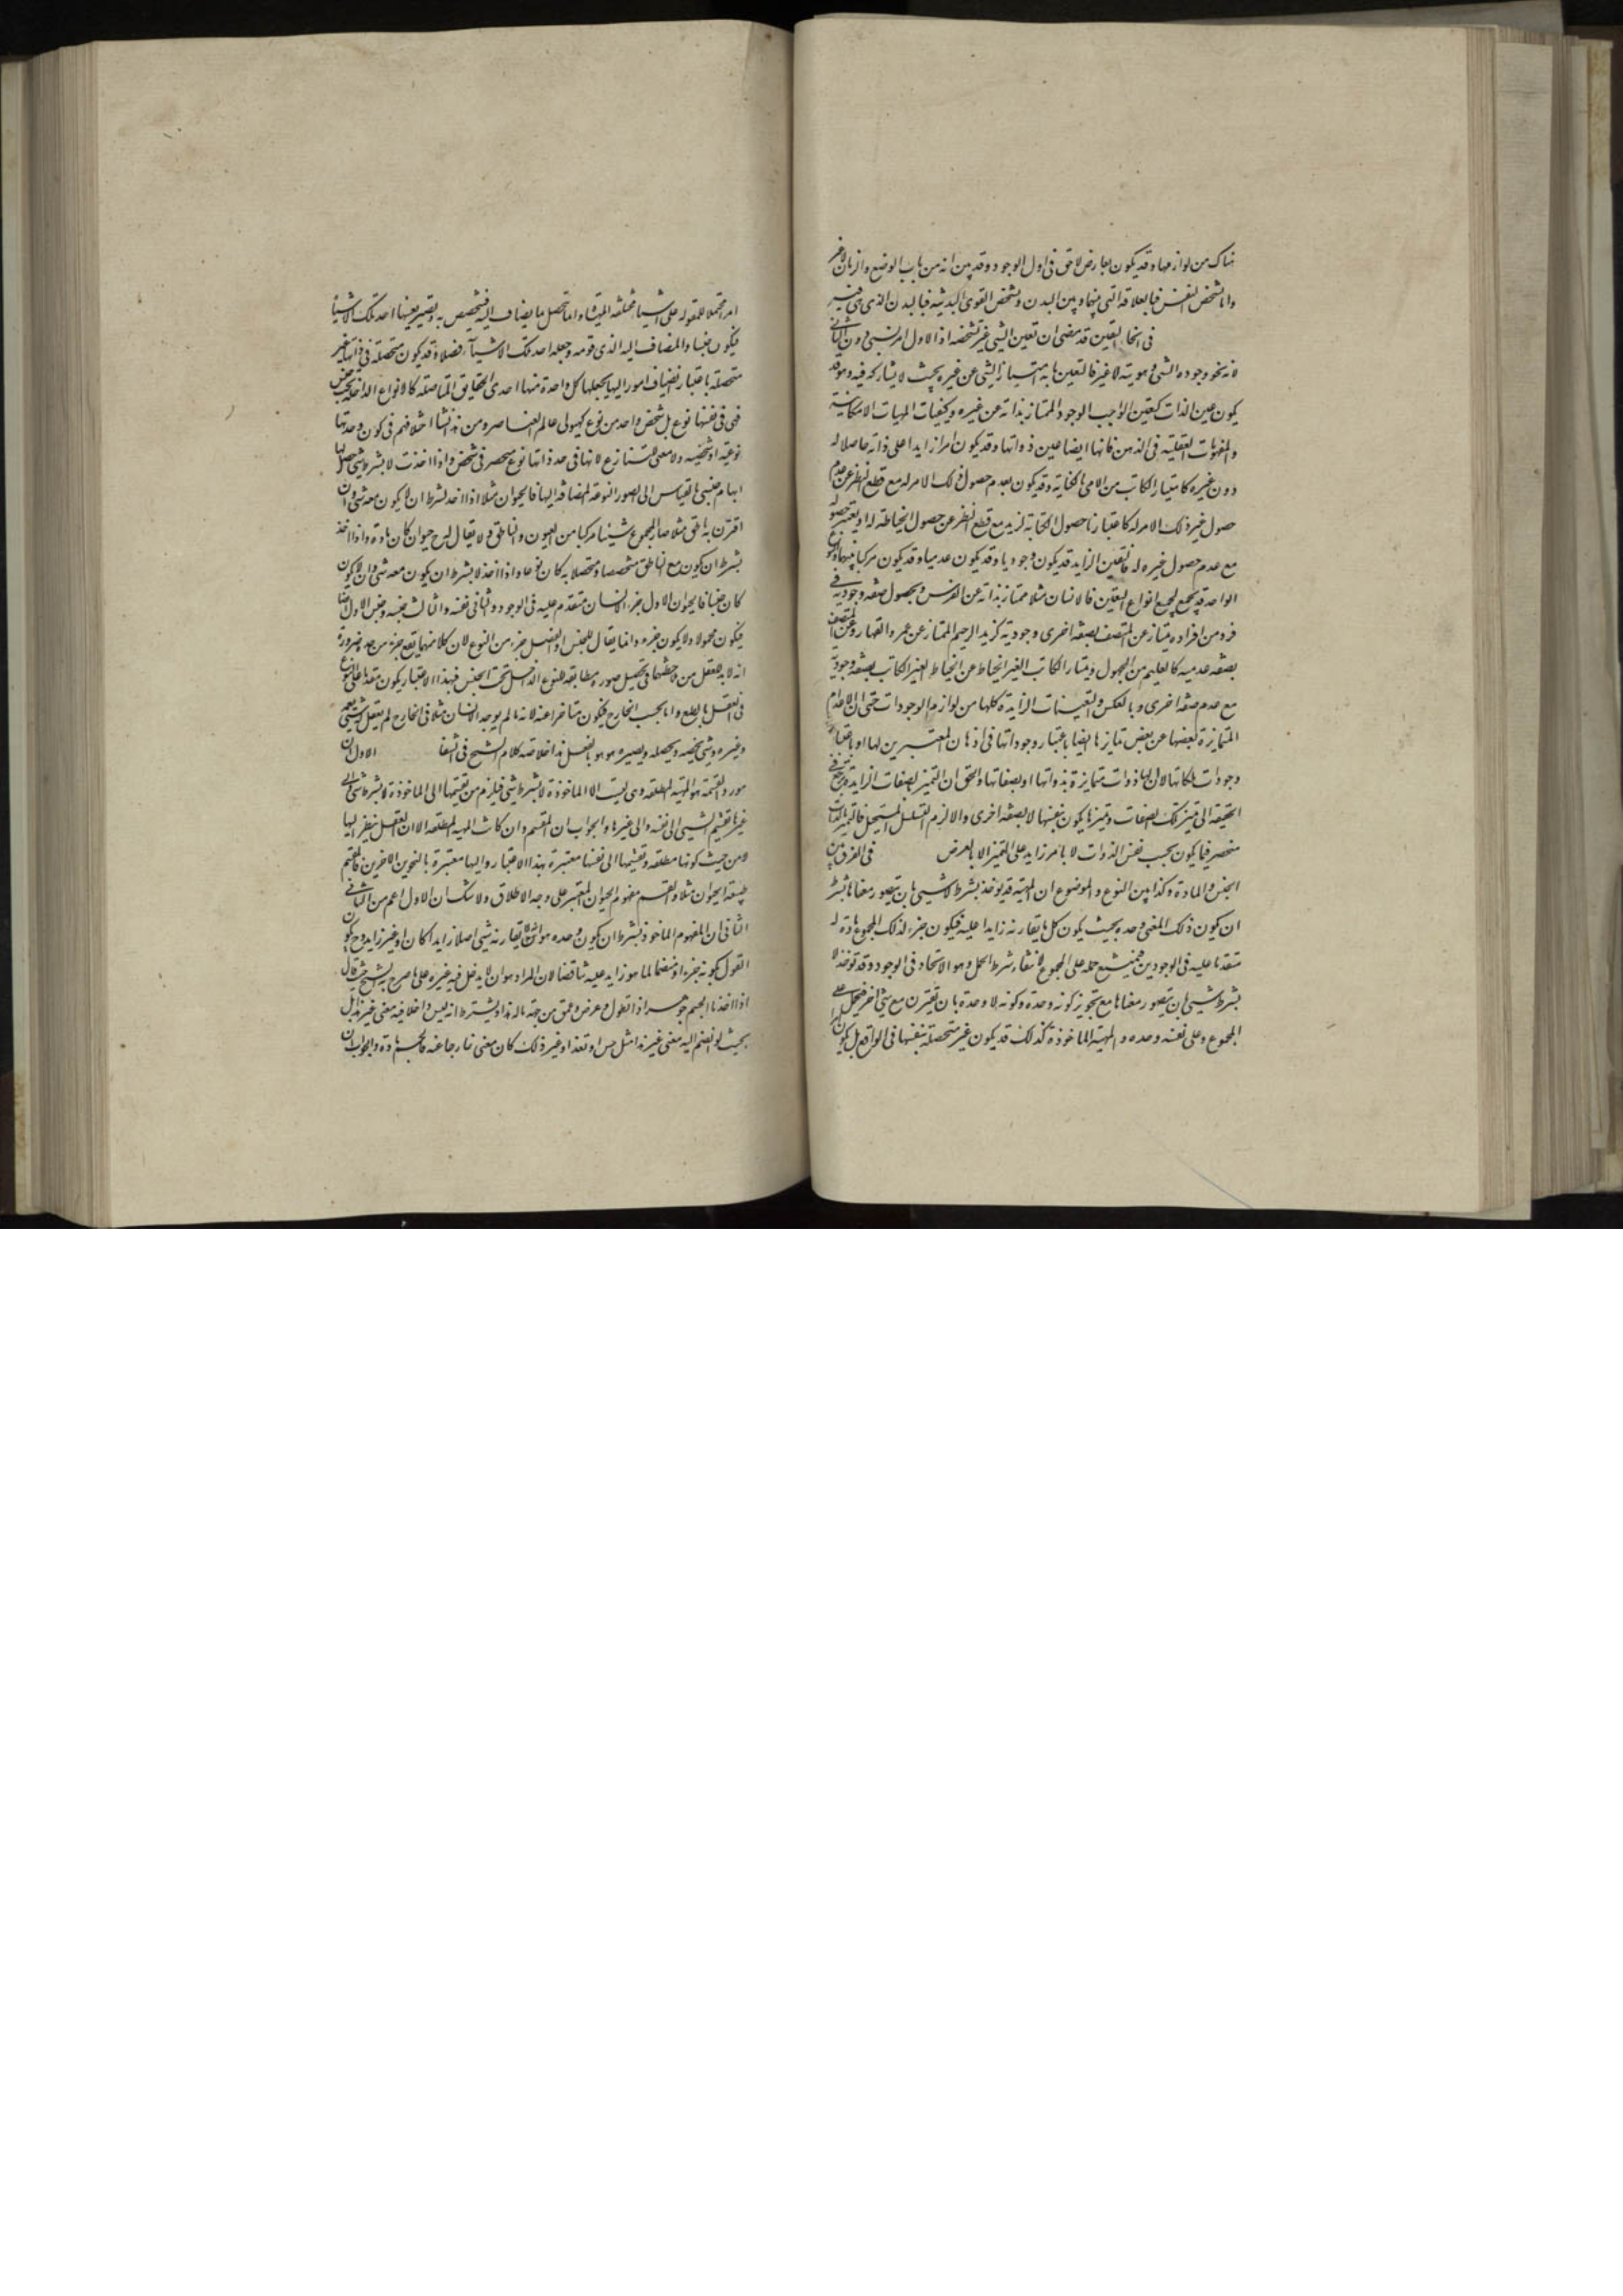 هناك من لوازمها وقد يكون بعارض لاحق فى اول الوجود وقد بين انه من باب الوضع والزمان لا غير
واما تشخص النفس فبالعلاقة التى بينها وبين البدن وتشخص القوى البدنية فبالبدن الذى هى فيه
فى انحاء التعين قد مضى ان تعين الشئ غير تشخصه اذ الاول امر نسبى دون الثانى
لانه نحو وجود الشئ وهويته لا غير فالتعين ما به امتياز الشئ عن غيره بحيث لا يشاركه فيه وهو قد
يكون عين الذات كتعين الواجب الوجود الممتاز بذاته عن غيره وكتعينات المهيات الامكانية
والمفهومات العقلية فى الذهن فانها ايضا عين ذواتها وقد يكون امرا زايدا على ذاته حاصلا له
دون غيره كامتياز الكاتب من الامى بالكتابة وقد يكون بعدم حصول ذلك الامر له مع قطع النظر عن عدم
حصول غير ذلك الامر له كاعتبارنا حصول الكتابة لزيد مع قطع النظر عن حصول الخياطة له او يعتبر حصوله
مع عدم حصول غيره له فالتعين الزايد قد يكون وجوديا وقد يكون عدميا وقد يكون مركبا منهما والنوع
الواحد قد يجمع لجميع انواع التعين فالانسان مثلا ممتاز بذاته عن الفرس وبحصول صفة وجودية فى
فرد من افراده يمتاز عن المتصف بصفة اخرى وجودية كزيد الرحيم الممتاز عن عمرو القهار وعن المتصف
بصفة عدمية كالعليم من الجهول ويمتاز الكاتب الغير الخياط عن الخياط الغير الكاتب بصفة وجودية
مع عدم صفة اخرى وبالعكس والتعينات الزايدة كلها من لوازم الوجودات حتى ان الاعدام
المتمايزة بعضها عن بعض تمايزها ايضا باعتبار وجوداتها فى اذهان المعتبرين لها او باعتبار
وجودات ملكاتها لا ان لها ذوات متمايزة بذواتها او بصفاتها والحق ان التميز بصفات الزايدة يرجع فى
الحقيقة الى تميز تلك الصفات وتميزها يكون بنفسها لا بصفة اخرى والا لزم التسلسل المستحيل فالتميز بالذات
منحصر فيما يكون بحسب نفس الذوات لا بامر زايد على التميز الا بالعرض فى الفرق بين
الجنس والمادة وكذا بين النوع والموضوع ان المهية قد يؤخذ بشرط لا شيئ بان يتصور معناها بشرط
ان يكون ذلك المعنى وحده بحيث يكون كل ما يقارنه زايدا عليه فيكون جزء لذلك المجموع مادة له
متقدما عليه فى الوجودين فيمتنع حمله على المجموع لانتفاء شرط الحمل وهو الاتحاد فى الوجود وقد تؤخذ لا
بشرط شيئ بان يتصور معناها مع تجويز كونه وحده وكونه لا وحده بان يقترن مع شئ اخر فيحمل على
المجموع وعلى نفسه وحده والمهية الماخوذة كذلك قد يكون غير متحصلة بنفسها فى الواقع بل يكون
امرا محتملا للمقولية على اشياء مختلفة المهيات وانما تتحصل بما يضاف اليه فيتخصص به ويصير بعينها احد تلك الاشياء
فيكون جنسا والمضاف اليه الذى قومه وجعله احد تلك الاشياء فصلا وقد يكون متحصلة فى ذاتها غير
متحصلة باعتبار انضياف امور اليها يجعلها كل واحدة منها احدى الحقايق المتاصلة كالانواع الداخلة تحت جنس
فهى فى نفسها نوع بل شخص واحد من نوع كهيولى عالم العناصر ومن هذا نشا اختلافهم فى كون وحدتها
نوعية او شخصية ولا معنى للتنازع لانها فى حد ذاتها نوع منحصر فى شخص واذا اخذت لا بشرط شئ حصل لها
ابهام جنسى بالقياس الى الصور النوعية المضافة اليها فالحيوان مثلا اذا اخذ بشرط ان لا يكون معه شئ وان
اقترن به ناطق مثلا صار المجموع شيئا مركبا من الحيون والناطق ولا يقال له ح حيوان كان مادة واذا اخذ
بشرط ان يكون مع الناطق متخصصا ومتحصلا به كان نوعا واذا اخذ لا بشرط ان يكون معه شئ وان لا يكون
كان جنسا فالحيوان الاول جزء الانسان متقدم عليه فى الوجود والثانى نفسه والثالث جنسه وجنس الاول ايضا
فيكون محمولا ولا يكون جزء وانما يقال للجنس والفصل جزء من النوع لان كلا منهما يقع جزء من حده ضرورة
انه لابد للعقل من ملاحظتهما فى تحصيل صورة مطابقة للنوع الداخل تحت الجنس فبهذا الاعتبار يكون متقدما على النوع
فى العقل بالطبع واما بحسب الخارج فيكون متاخرا عنه لانه ما لم يوجد الانسان مثلا فى الخارج لم يعقل له شيئ يعمه
وغيره وشئ يخصه ويحصله ويصيره هو هو بالفعل هذا خلاصة كلام الشيخ فى الشفا الاول ان
مورد القسمة هو المهية المطلقة وهى ليست الا الماخوذة لا بشرط شئ فيلزم من تقسيمها الى الماخوذة لا بشرط شئ والى
غيرها تقسيم الشيئ الى نفسه والى غيرها والجواب ان المقسم وان كانت المهية المطلقة الا ان العقل ينظر اليها
لا من حيث كونها مطلقة وتقسيمها الى نفسها معتبرة بهذا الاعتبار واليها معتبرة بالنحوين الاخرين فالمقسم
طبيعة الحيوان مثلا والقسم مفهوم الحيوان المعتبر على وجه الاطلاق ولا شك ان الاول اعم من الثانى
الثانى ان المفهوم الماخوذ بشرط ان يكون وحده هو ان لا يقارنه شيئ اصلا زايدا كان او غير زايد وح يكون
القول بكونه جزء او منضما لما هو زايد عليه تناقضا لان المراد هو ان لا يدخل فيه غيره على ما صرح به الشيخ حيث قال
اذا اخذنا الجسم جوهرا ذا طول وعرض وعمق من جهة ما له هذا ويشترط انه ليس داخلا فيه معنى غير هذا بل
بحيث لو انضم اليه معنى غير هذا مثل حس او تغذ او غير ذلك كان معنى خارجا عنه فالجسم مادة والجواب ان